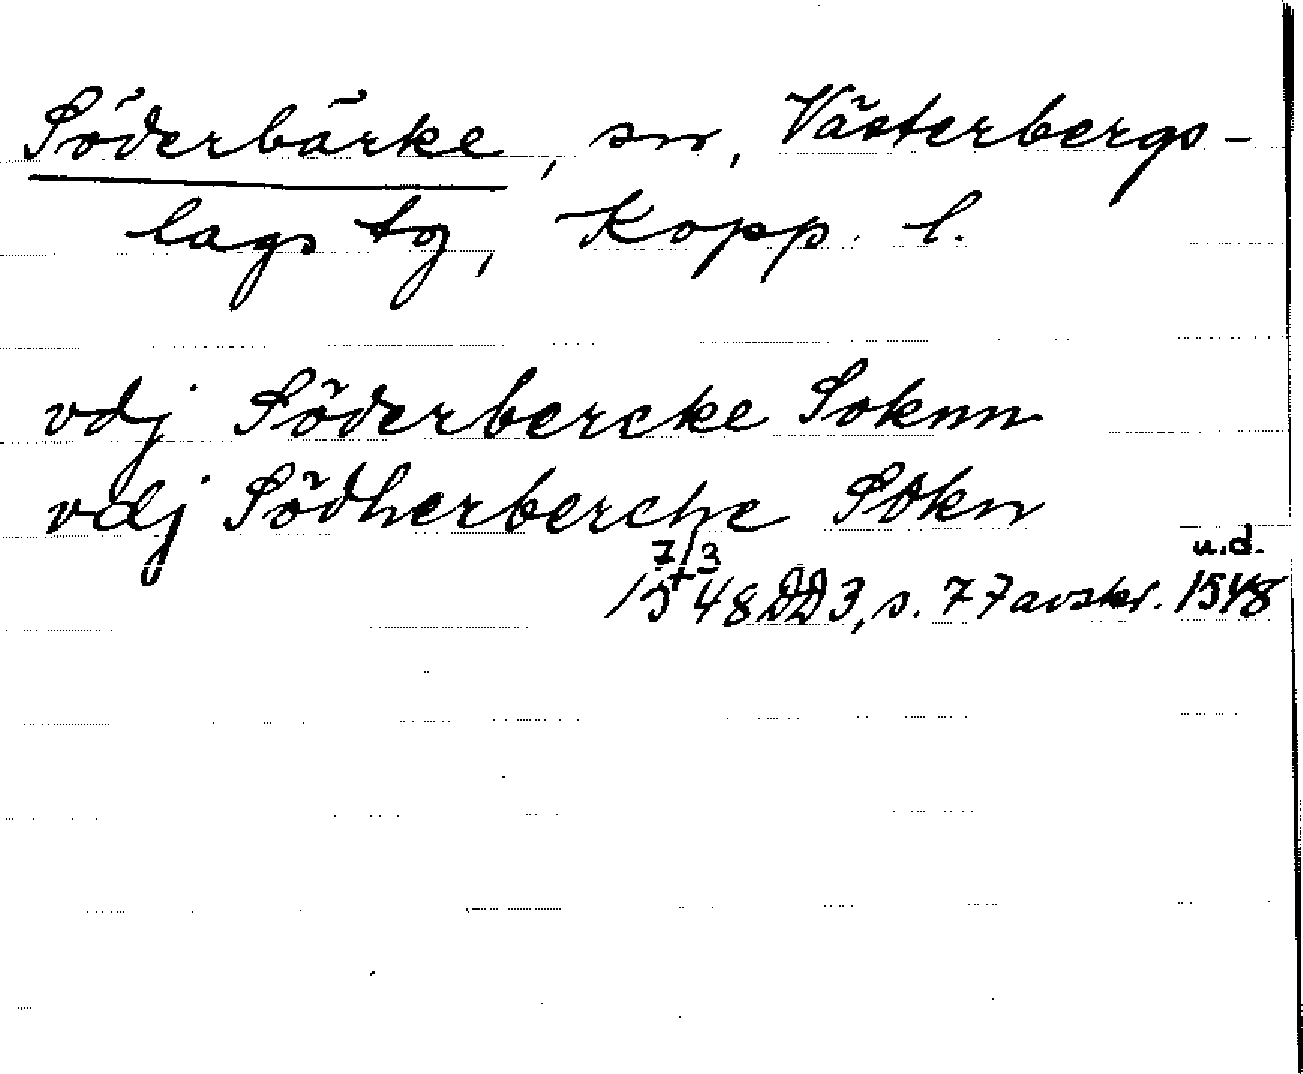 Söderbärke, sn, Västerbergs-
lags tg, Kopp. l.
vdj Söderbercke Soknn
vdj Södherberche Sokn
7/3 u.d.
1548 DD3, s. 77 avskr. 1548